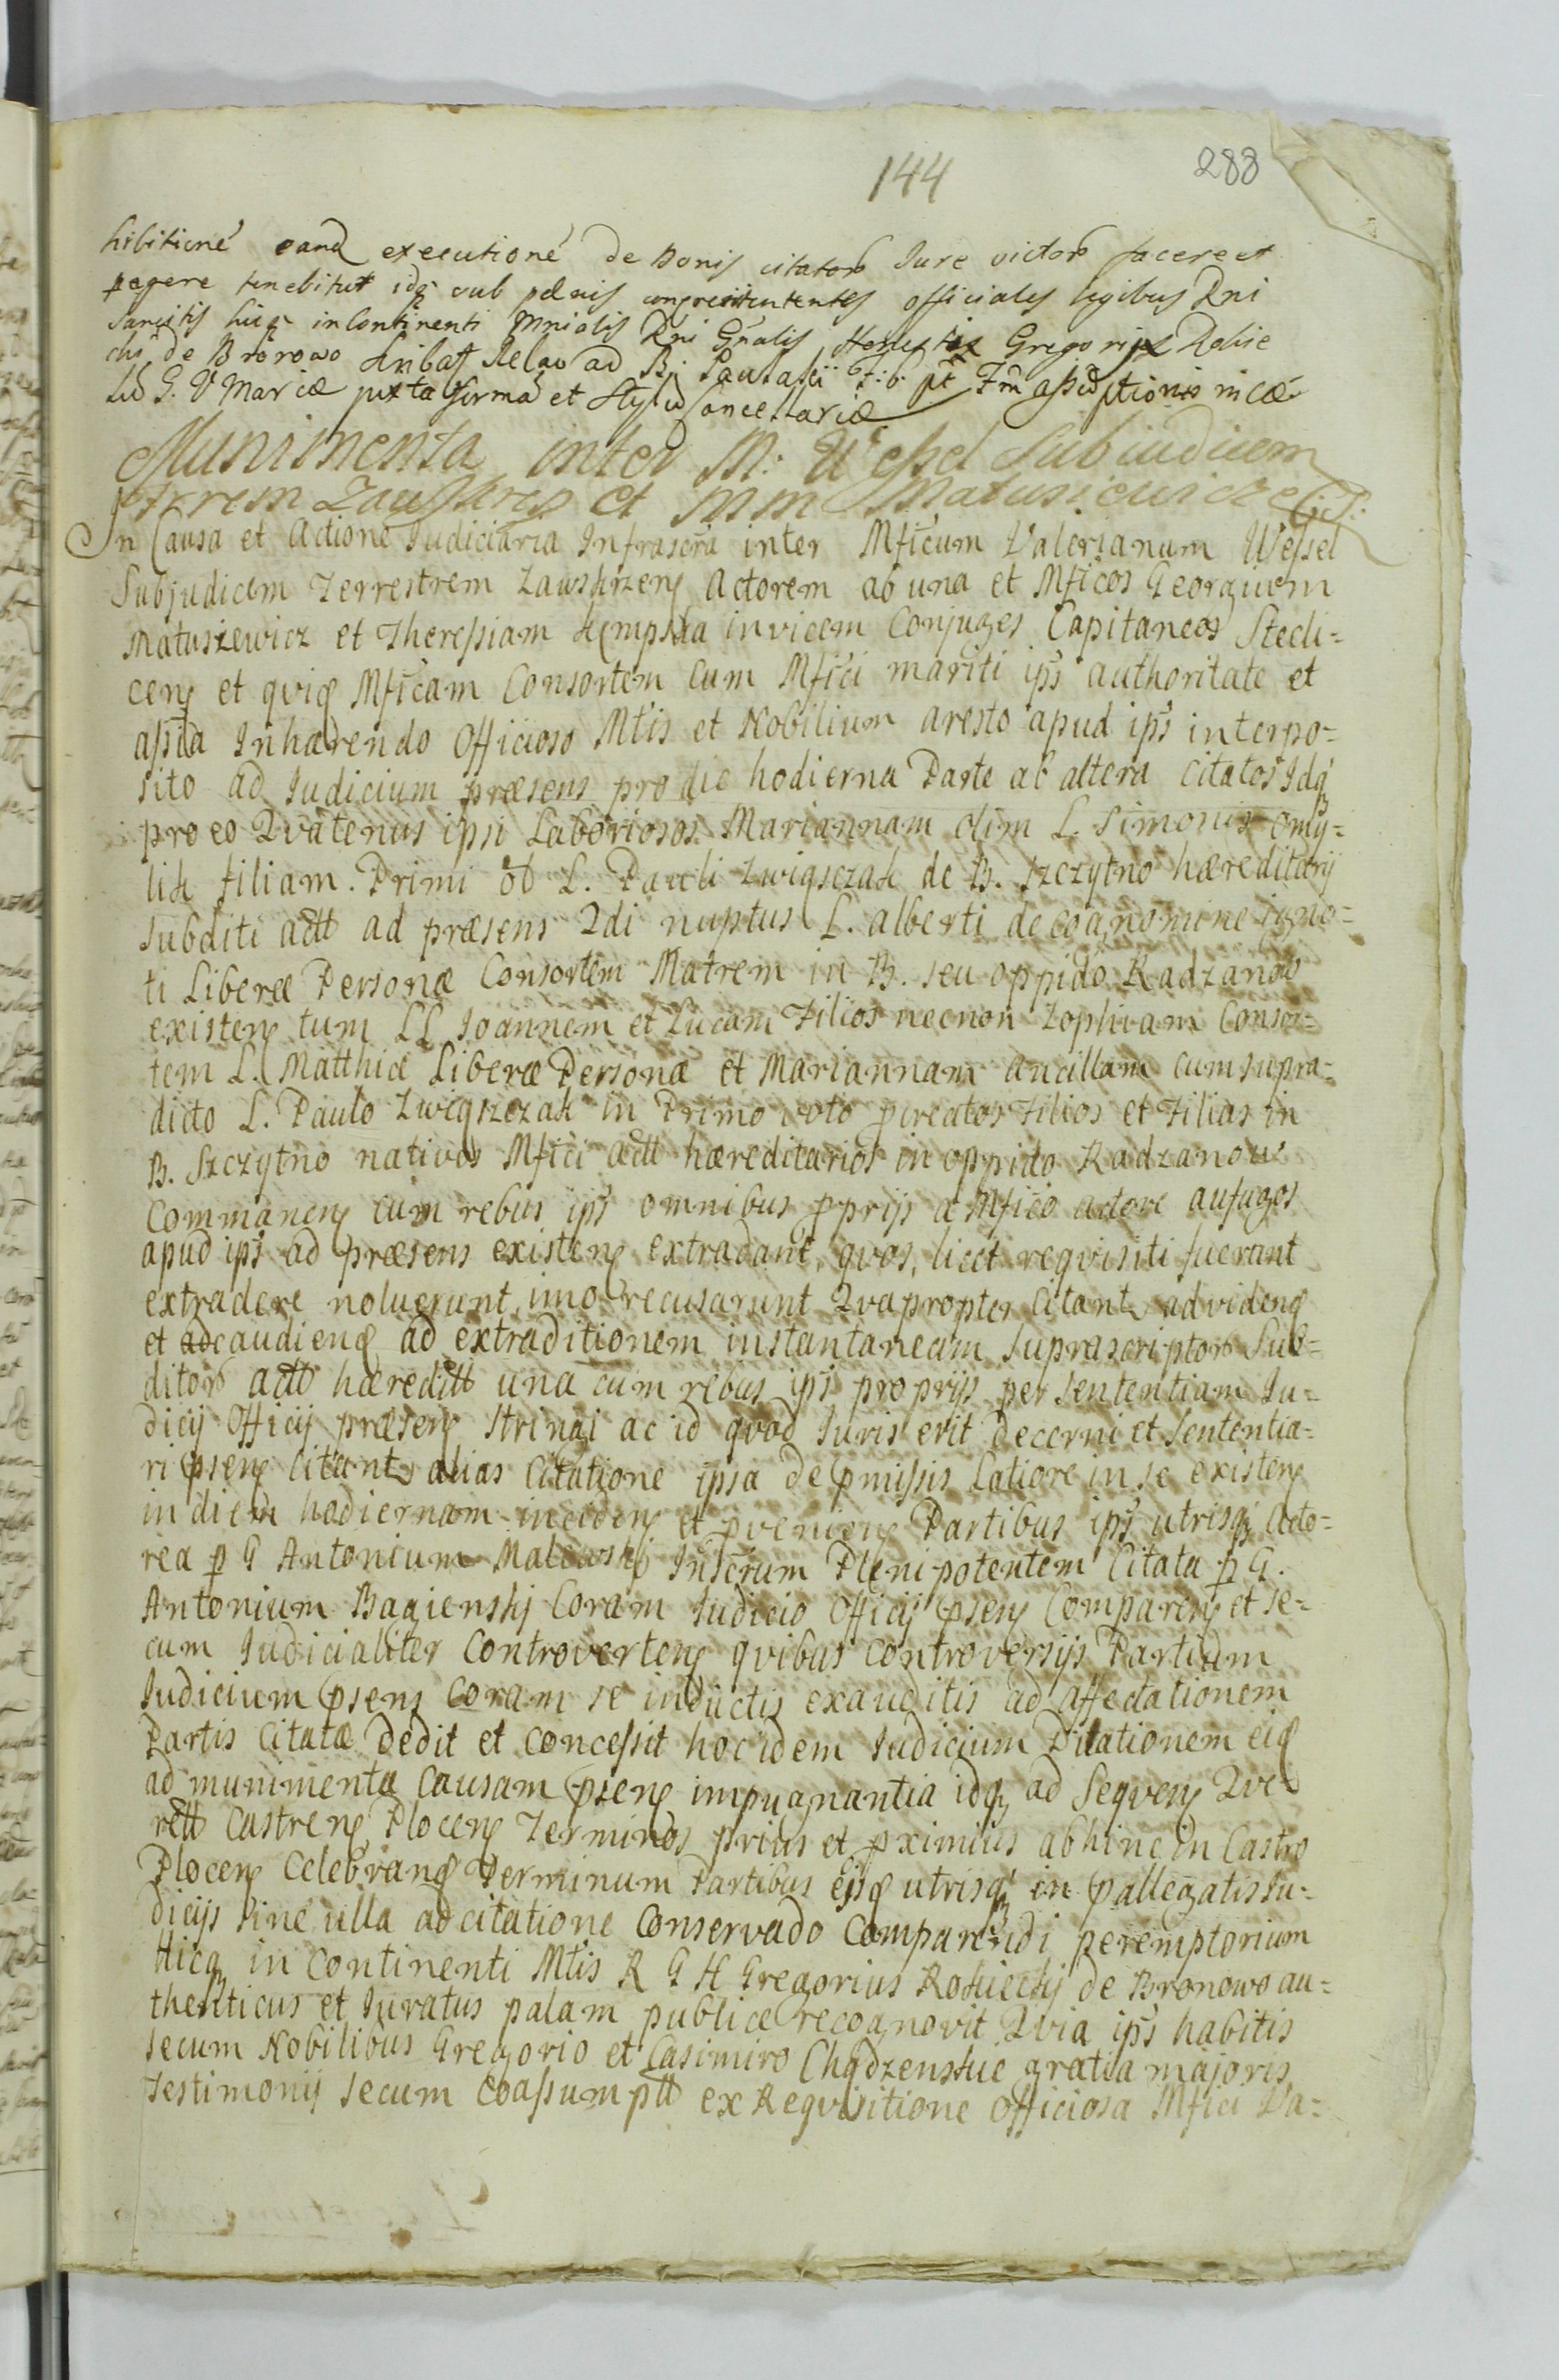 144
288
hibitioné eand executioné de Bonis citator Jure victor facere et
pagere tenebitur idq sub pœnis officiales legibus Rni
sancitis hicq in Continenti Mnialis Rni Gnalis Honestus Gregorius Rokic
chi de Bronowo scribat Relão ad B.
lũ G. V Mariæ juxta formã et Stylũ Cancellariæ
Munimenta inter M. Wessel Subiudicem
Zawskren et MM Matusiewicze
In Causa et Actione Judiciaria Infrascra inter Mficum Valerianum Wessel
Subjudicem Terrestrem Zawskrzens Actorem ab una et Mficos Georgium
Matuszewicz et Theressiam Kempska invicem Conjuges Capitaneos Stecli=
cens et qviq Mficam Consortem Cum Mfici mariti ips authoritate et
assia Inhærendo Officioso Mtis et Nobilium aresto apud ips interpo=
sito ad Judicium præsens pro die hodierna Parte ab altera citatos Idq
pro eo Qvatenus ipsi Laboriosos Mariannam olim L. Simonis Omy=
lik filiam. Primi ol L. Pauli Zwiąsczak de B. Szczytno hæreditarij
subditi actt ad præsens 2di nuptus L. alberti de cognomine igno=
ti Liberæ Personæ Consortem Matrem in B. seu oppido Radzanow
existens tum LL Joannem et Lucam Filios necnon Zophiam Consor=
tem L. Matthiæ Liberæ Personæ et Mariannam ancillam cum supra=
dicto L. Paulo Zwiąszczak in Primo voto pcreatos Filios et Filias in
B. Szczytno nativos Mfici actt hæreditarios in oppido Radzanow
Commanens cum rebus ips omnibus pprijs a Mfico actore aufugos
apud ips ad præsens existens extradant, qvos, licet reqvisiti fuerant
extradere noluerunt, imo recusarunt Qvapropter Citant ad videnđ
et adcaudienđ ad extraditionem instantaneam suprascriptor Sub=
ditor actt hæreditt una cum rebus ips proprijs per Sententiam Ju=
dicij Officij præsens stringi ac id qvod Juris erit Decerni et Sententia=
ri psens Citant alias Citatione ipsa de pmissis Latiore in se existens
in diem hodiernam incidens et pveniens Partibus ips utrisq Acto=
rea p G Antonium Malewski Inscrum Plenipotentem Citata p G.
Antonium Bagienski Coram Judicio Officij psens Comparens et se=
cum Judicialiter Controvertens qvibus Controversijs Partium
Judicium psens Coram se inductis exauditis ad affectationem
Partis Citatæ Dedit et Concessit hoc idem Judicium Dilationem eiđ
ad munimenta Causam psens impugnantia idq ad Seqvens Qve=
rett Castrens Plocens Terminos prius et pximius abhinc in Castro
Plocens Celebranđ Terminum Partibus eisđ utrisq in pallegatis Ju=
dicijs sine ulla adcitatione Conservado Comparendi peremptorium
Hicq in Continenti Mtis R G H Gregorius Rokicchi de Bronowo au=
thenticus et Juratus palam publice recognovit Qvia ips habitis
secum Nobilibus Gregorio et Casimiro Chądzenskie gratia majoris
Testimonij secum Coassumptt ex Reqvisitione Officiosa Mfici Va=